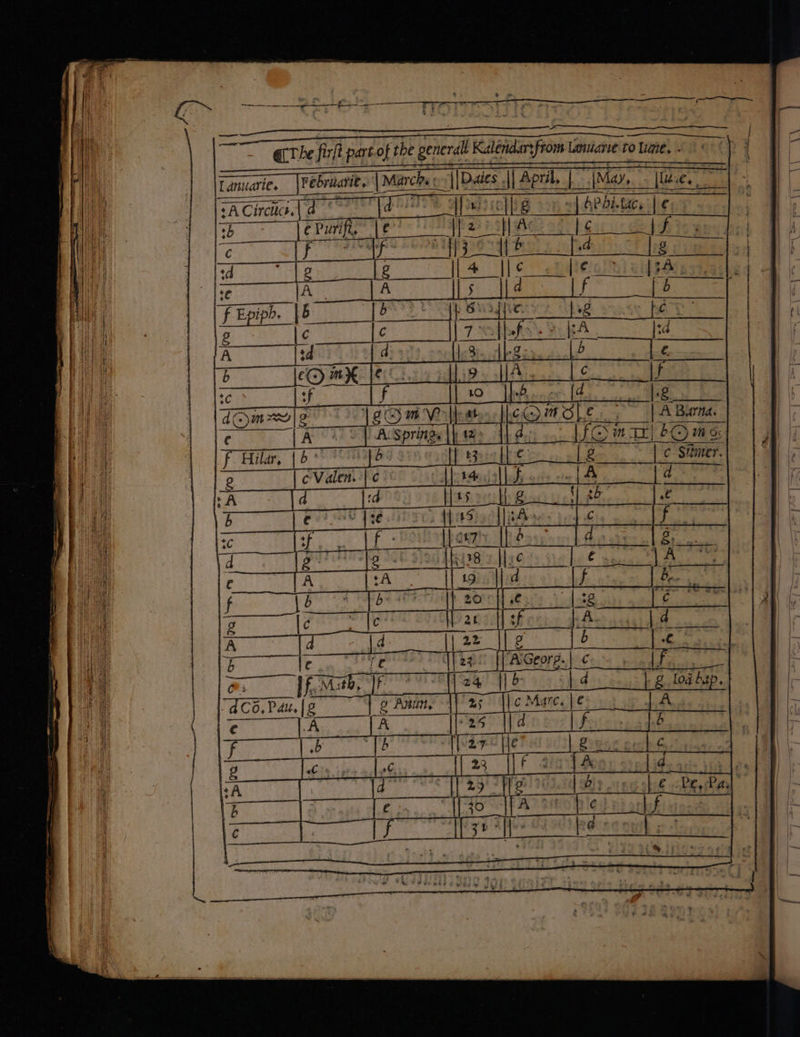 The first part of the generall Kalendar from Ianuarie to Iune.
Ianuarie. | Februarie. | March. || Daies || April. | May. | Iune.
:A Circūcis. | d | d || 1 || g | b Phi.Iac. | e
:b | e Purifi. | e || 2 || A | c | f
c | f | f || 3 || b | d | g
:d | g | g || 4 || c | e | :A
:e | A | A || 5 || d | f | b
f Epiph. | b | b || 6 || e | g | c
g | c | c || 7 || f | :A | :d
A | :d | d || 8 || g | b | e
b | e ☉ in ♓ | e || 9 || A | c | f
:c | :f | f || 10 || b | d | g
d ☉ in ♒ | g | g ☉ in ♈ || 11 || c ☉ in ♉ | e | A Barna.
e | A | A Spring. || 12 || d | f ☉ in ♊ | b ☉ in ♋
f Hilar. | b | b || 13 || e | g | c Sūmer.
g | c Valen. | c || 14 || f | A | d
:A | d | :d || 15 || g | :b | e
b | e | :e || 16 || :A | c | f
:c | :f | f || 17 || b | d | g
d | g | g || 18 || :c | e | A
e | A | :A || 19 || d | f | b
f | b | b || 20 || e | :g | c
g | c | c || 21 || :f | A | d
A | d | d || 22 || g | b | e
b | e | e || 23 || A Georg. | c | f
c | f. Math. | f || 24 || b | d | g Ioā bap.
d Cō. Pau. | g | g Anūn. || 25 || c Marc. | e | A
e | A | A || 26 || d | f | b
f | b | b || 27 || e | g | c
g | c | c || 28 || f | A | d
:A | d || 29 || g | b | e Pe. Pa.
b | e || 30 || A | c | f
c | f || 31 || d